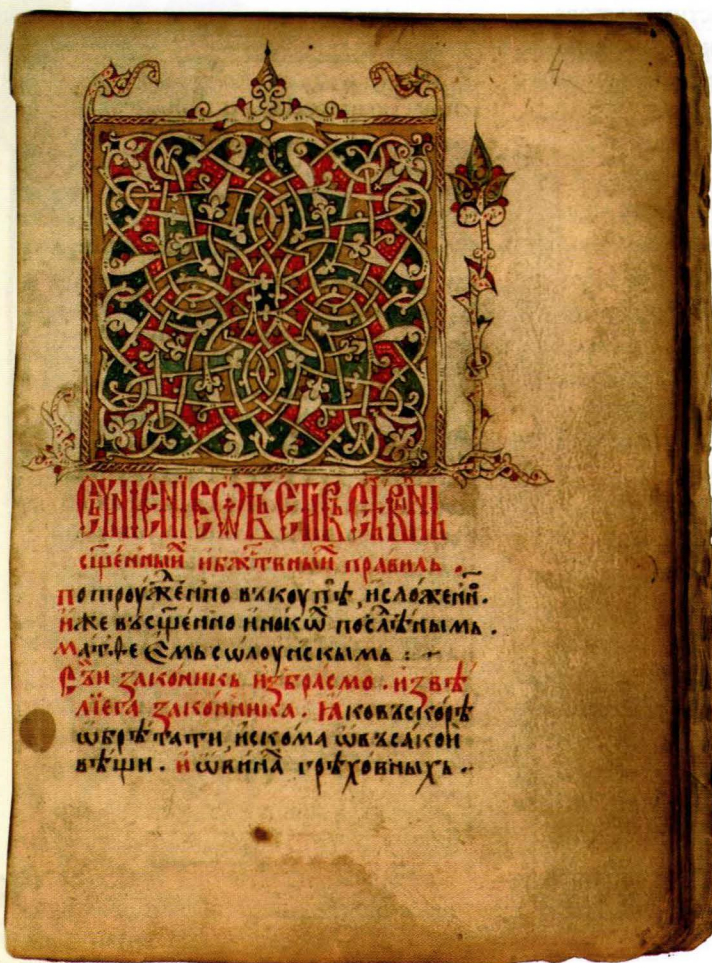 4
Съчинение ѡбъетїи въсѣ вин
сщ҃еннымⷯ и бжⷭ҇твнымⷯ правиль .
потроуженно въкоупѣ, и сложенноⷨ.
иже въ сщ҃енно инокѡⷯ послѣднымь .
матѳеемь солоунскымь :~
Съи законикь избрасмо . из вѣ
лїега законника . Ꙗко въскорѣ
ѡбрѣтати искома ѡ въсакои
вѣщи . и ѡ винⷶ грѣховныхь ~